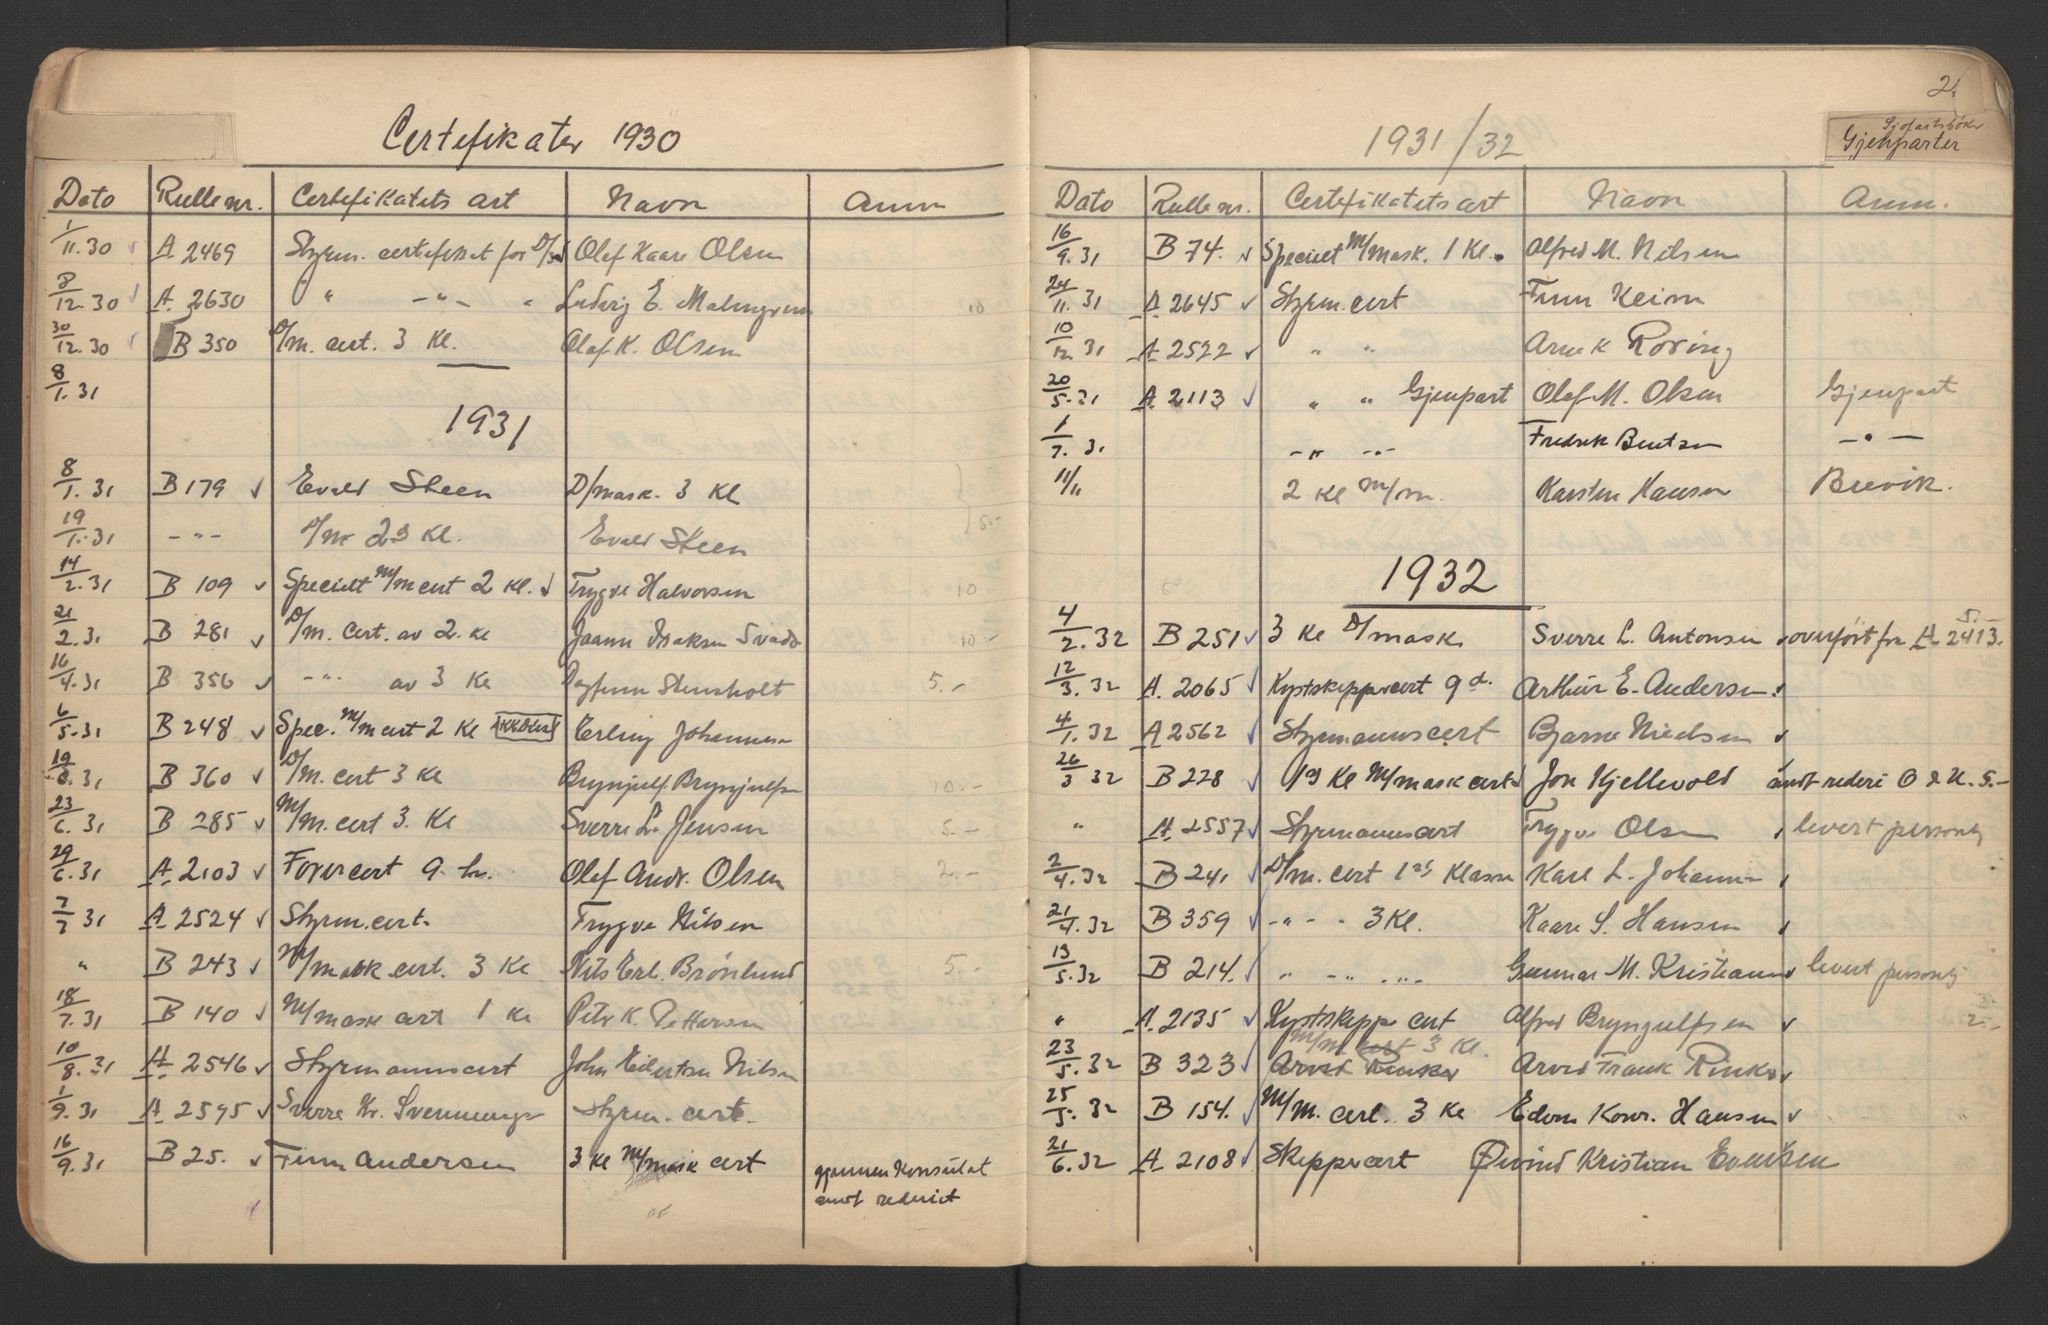 Certefikater 1930
Dato Rullenr. Certefikatets art Navn Anm
1/11.30 A 2469 Styrm. certefikat for D/S Olaf Kaare Olsen
8/12.30 A 2630 " -"- " Ludvig E. Malmgren 10
30/12.30 B 350 D/m. cert. 3 Kl. Olaf K. Olsen
8/1.31
1931
8/1.31 B 179 Evald Steen D/mask. 3 Kl
19/1.31 -"- D/m 2 Kl. Evald Steen 5.-
14/2.31 B 109 Specielt M/m cert 2 Kl. Trygve Halvorsen 10
21/2.31 B 281 D/m. cert. av 2. Kl Isaksen 10-
16/4.31 B 356 -"- av 3 Kl Dagfinn Stensholt 5.-
6/5.31 B 248 Spec. M/m cert 2 Kl Erling Johannesen
B 360 D/m. cert 3 Kl Brynjulf Brynjulfsen 10.-
23/6.31 B 285 M/m. cert 3. Kl Sverre L. Jensen 5.-
29/6.31 A 2103 Førercert 9. Olaf Andr. Olsen 2.-
7/7 31 A 2524 Styrm.cert. Trygve Nilsen
" B 243 M/mask cert. 3 Kl Nils Erl. Brønlund 5.-
18/7.31 B 140 M/mask cert 1 Kl Petr K. Pettersen
10/8.31 A 2546 Styrmannscert John Eilertsen Nilsen
1/9.31 A 2595 Sverre Kr. Svennunge Styrm. cert.
16/9.31 B 25. Finn Andersen 3 Kl M/mask cert gjennem Konsulat
amt rederiet
2.
1931/32
Sjøfartsbøker
Gjenparter
Dato Rullenr. Certifikatets art Navn Anm.
16/9.31 B 74. Specielt M/mask. 1 Kl. Alfred M. Nilsen
24/11.31 A 2645 Styrm.cert Finn Keim
10/12.31 A 2522 " " Arne K Roving
20/5.31 A 2113 " " Gjenpart Olaf M. Olsen Gjenpart
1/7.31 -"- -"- Fredrik Bentsen -"-
11/11 2 Kl M/m. Karsten Hansen Brevik.
1932
4/2.32 B 251 3 Kl D/mask Sverre L. Antonsen overført fra A 2413. 5.-
12/3.32 A. 2065 Kystskippercert 9 d. Arthur E. Andersen
4/1.32 A 2562 Styrmannscert Bjarne Nielsen
26/3 32 B 228 1ste Kl M/mask cert Jon Kjellevold sendt rederi O & K. 5.-
" A. 2557 Styrmannscert Trygve Olsen levert personlig
2/4.32 B 241 D/m. cert 1ste Klasse Karl L. Johannsen
21/4.32 B 359 -"- " 3 Kl. Kaare S. Hansen
13/5.32 B 214. " -"- -"- Gunnar M. Kristiansen levert personlig
" A. 2135 Kystskipper cert Alfred Bryngulfsen 2.-
M/m cert 3 Kl.
23/5.32 B 323 Arvid Rinker Arvid Frank Rinker
25/5.32 B 154. M/m. cert. 3 Kl Edvin Konr. Hansen
21/6.32 A 2108 Skippercert Øivind Kristian Evensen